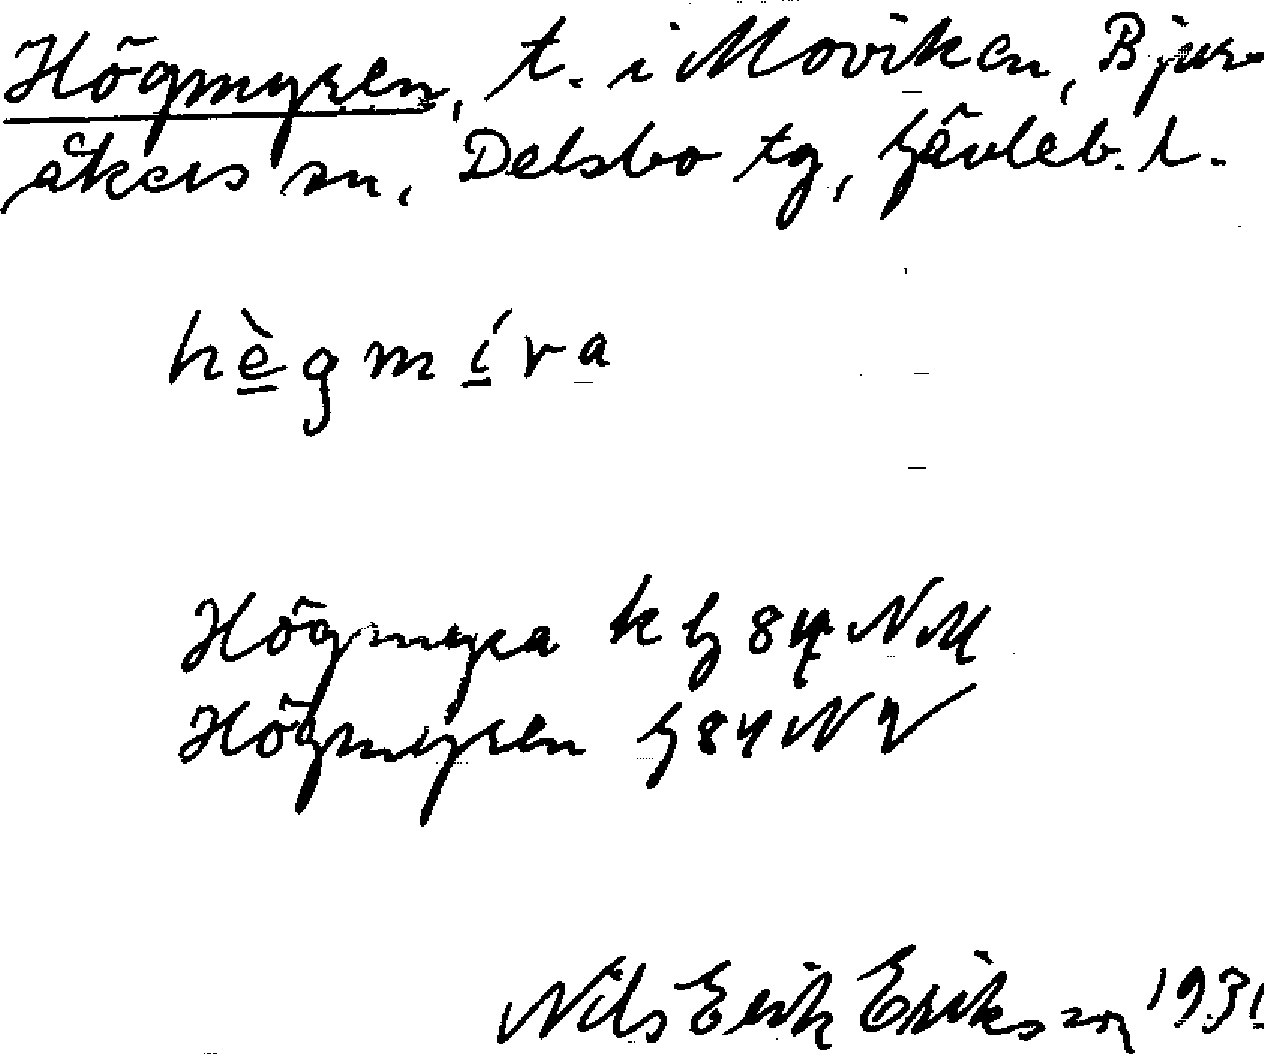 Högmyren, t. i Moviken, Bjur-
åkers sn, Delsbo tg, Gävleb. l.
hègmíra
Högmyra k G 84 NM
Högmyren G 84 N V
Nils Erik Eriksson 1931